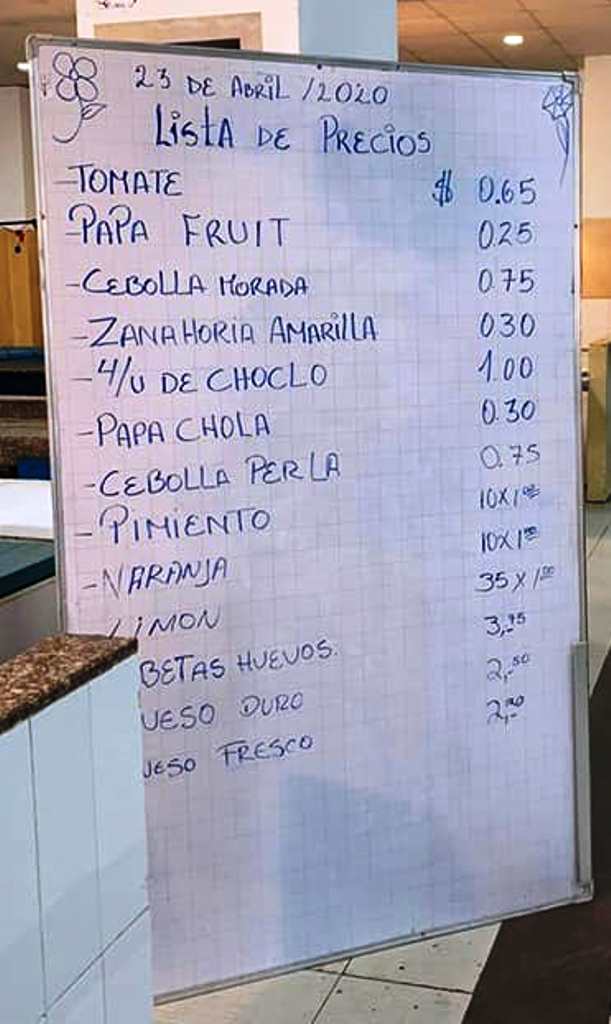 23 DE ABRIL / 2020
LISTA DE PRECIOS
- TOMATE $ 0.65
- PAPA FRUIT 0.25
- CEBOLLA MORADA 0.75
- ZANAHORIA AMARILLA 030
- 4/U DE CHOCLO 1.00
- PAPA CHOLA 0.30
- CEBOLLA PERLA 0.75
- PIMIENTO 10X1.00
- NARANJA 10X1.00
LIMON 35 X 1.00
BETAS HUEVOS.
UESO DURO 2,50
UESO FRESCO